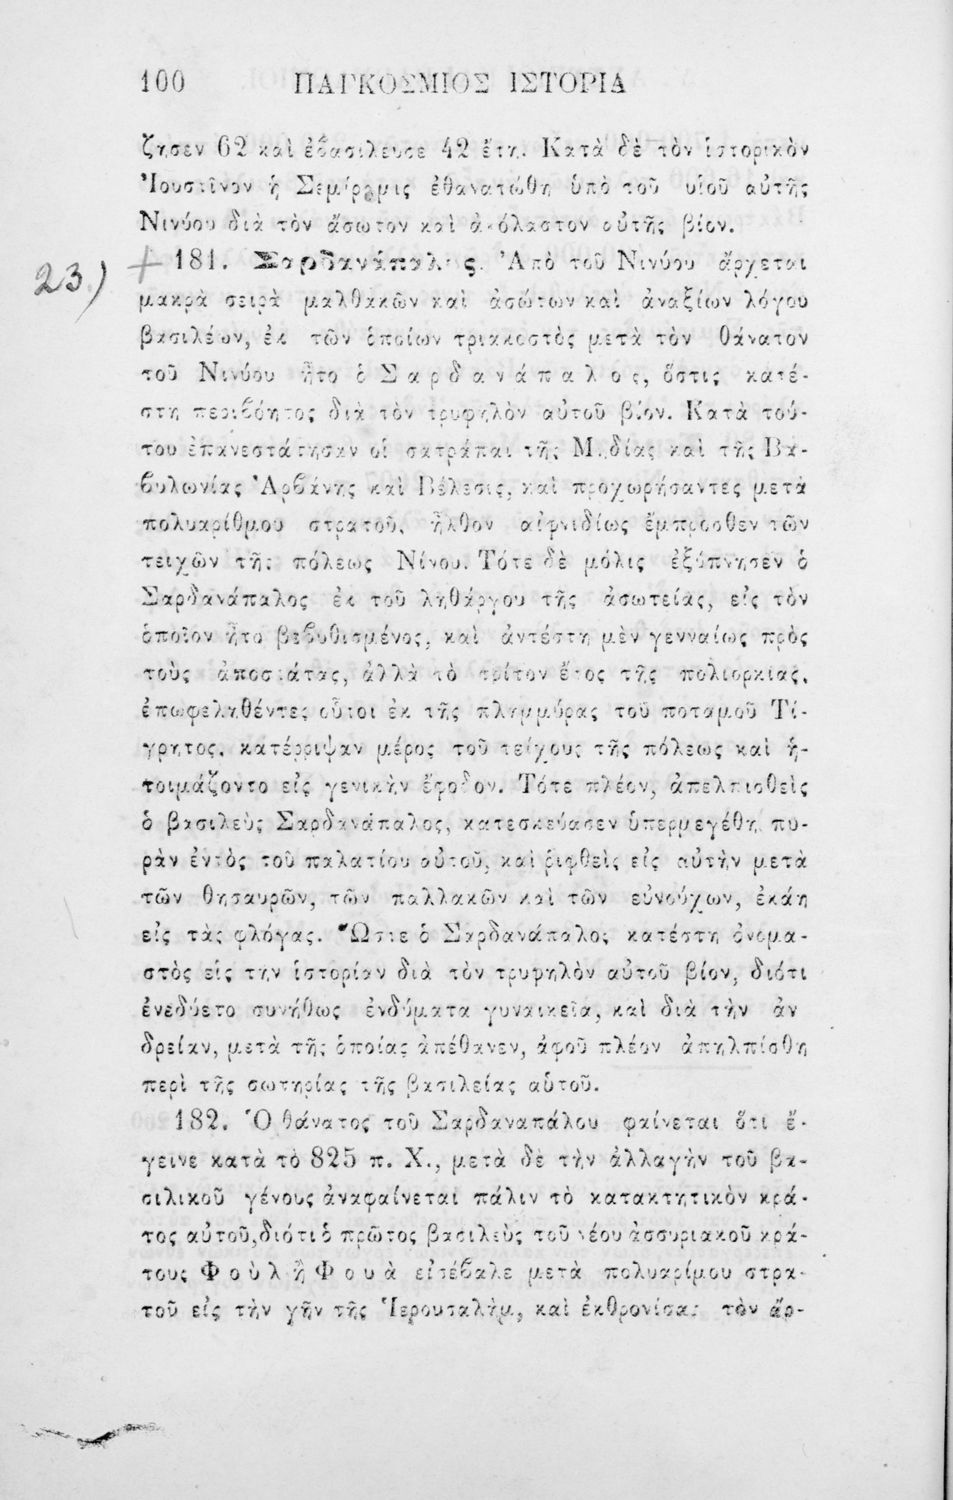 100 ΠΑΓΚΟΣΜΙΟΣ ΙΣΤΟΡΙΑ
ζησεν 62 καὶ ἐβασίλευσε 42 ἔτη. Κατὰ δὲ τὸν ἱστορικὸν
Ἰουστῖνον ἡ Σεμίραμις ἐθανατώθη ὑπὸ τοῦ υἱοῦ αὐτῆς
Νινύου διὰ τὸν ἄσωτον καὶ ἀκόλαστον αὐτῆς βίον.
23) + 181. Σαρδανάπαλος. Ἀπὸ τοῦ Νινύου ἄρχεται
μακρὰ σειρὰ μαλθακῶν καὶ ἀσώτων καὶ ἀναξίων λόγου
βασιλέων, ἐκ τῶν ὁποίων τριακοστὸς μετὰ τὸν θάνατον
τοῦ Νινύου ἦτο ὁ Σαρδανάπαλος, ὅστις κατέ-
στη περιβόητος διὰ τὸν τρυφηλὸν αὐτοῦ βίον. Κατὰ τού-
του ἐπανεστάτησαν οἱ σατράπαι τῆς Μηδίας καὶ τῆς Βα-
βυλωνίας Ἀρβάνης καὶ Βέλεσις, καὶ προχωρήσαντες μετὰ
πολυαρίθμου στρατοῦ, ἦλθον αἰφνιδίως ἔμπροσθεν τῶν
τειχῶν τῆς πόλεως Νίνου. Τότε δὲ μόλις ἐξύπνησεν ὁ
Σαρδανάπαλος ἐκ τοῦ ληθάργου τῆς ἀσωτείας, εἰς τὸν
ὁποῖον ἦτο βεβυθισμένος, καὶ ἀντέστη μὲν γενναίως πρὸς
τοὺς ἀποστάτας, ἀλλὰ τὸ τρίτον ἔτος τῆς πολιορκίας,
ἐπωφεληθέντες οὗτοι ἐκ τῆς πλημμύρας τοῦ ποταμοῦ Τί-
γρητος, κατέρριψαν μέρος τοῦ τείχους τῆς πόλεως καὶ ἡ-
τοιμάζοντο εἰς γενικὴν ἔφοδον. Τότε πλέον, ἀπελπισθεὶς
ὁ βασιλεὺς Σαρδανάπαλος, κατεσκεύασεν ὑπερμεγέθη πυ-
ρὰν ἐντὸς τοῦ παλατίου αὐτοῦ, καὶ ῥιφθεὶς εἰς αὐτὴν μετὰ
τῶν θησαυρῶν, τῶν παλλακῶν καὶ τῶν εὐνούχων, ἐκάη
εἰς τὰς φλόγας. Ὥστε ὁ Σαρδανάπαλος κατέστη ὀνομα-
στὸς εἰς τὴν ἱστορίαν διὰ τὸν τρυφηλὸν αὐτοῦ βίον, διότι
ἐνεδύετο συνήθως ἐνδύματα γυναικεῖα, καὶ διὰ τὴν ἀν
δρείαν, μετὰ τῆς ὁποίας ἀπέθανεν, ἀφοῦ πλέον ἀπηλπίσθη
περὶ τῆς σωτηρίας τῆς βασιλείας αὑτοῦ.
182. Ὁ θάνατος τοῦ Σαρδαναπάλου φαίνεται ὅτι ἔ-
γεινε κατὰ τὸ 825 π. Χ., μετὰ δὲ τὴν ἀλλαγὴν τοῦ βα-
σιλικοῦ γένους ἀναφαίνεται πάλιν τὸ κατακτητικὸν κρά-
τος αὐτοῦ, διότι ὁ πρῶτος βασιλεὺς τοῦ νέου ἀσσυριακοῦ κρά-
τους Φοὺλ ἢ Φουὰ εἰσέβαλε μετὰ πολυαρίμου στρα-
τοῦ εἰς τὴν γῆν τῆς Ἱερουσαλὴμ, καὶ ἐκθρονίσας τὸν ἄρ-